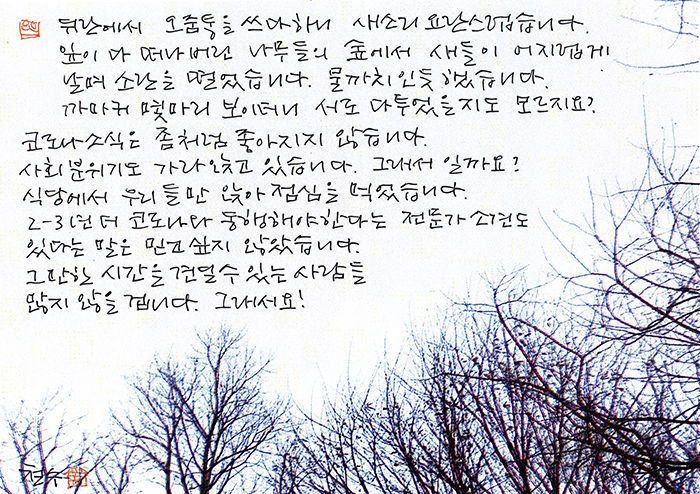 뒤란에서 오줌통을 쓰다하니 새소리 요란스럽습니다.
잎이 다 떠나버린 나무들의 숲에서 새들이 어지럽게
날며 소란을 떨었습니다. 물까치인듯 했습니다.
까마귀 몇마리 보이더니 서로 다투었을지도 모르지요?
코로나소식은 좀처럼 좋아지지 않습니다.
사회분위기도 가라앉고 있습니다. 그래서 일까요?
식당에서 우리들만 앉아 점심을 먹었습니다.
2-3년 더 코로나와 동행해야한다는 전문가 소견도
있다는 말은 믿고싶지 않았습니다.
그만한 시간을 견딜수 있는 사람들
많지 않을 겝니다. 그래서요!